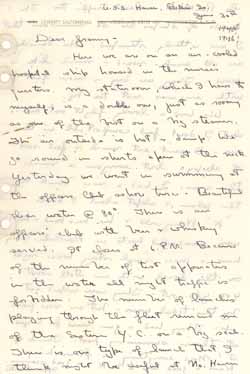 U.S.S. Haven, Bikini
June 30th
1946
Dear Granny -
Here we are on an air-cooled
hospital ship housed in the nurses
quarters. My stateroom which I have to
myself, is a double one, just as roomy
as one of the best on a N.Y. steamer.
The air outside is hot & damp. We
go around in shorts & open at the neck
Yesterday we went in swimming at
the officers Club ashore twice. Beautiful
clear water @ 80°. There is an
officers' club with beer & whiskey
served. It closes at 6 P.M. Because
of the number of test apparatus
in the water all night traffic is
forbidden. The number of launches
plying through the fleet remind me
of the Eastern Y.C. on a big sail.
There is one type of launch that I
think might be useful at No. Haven